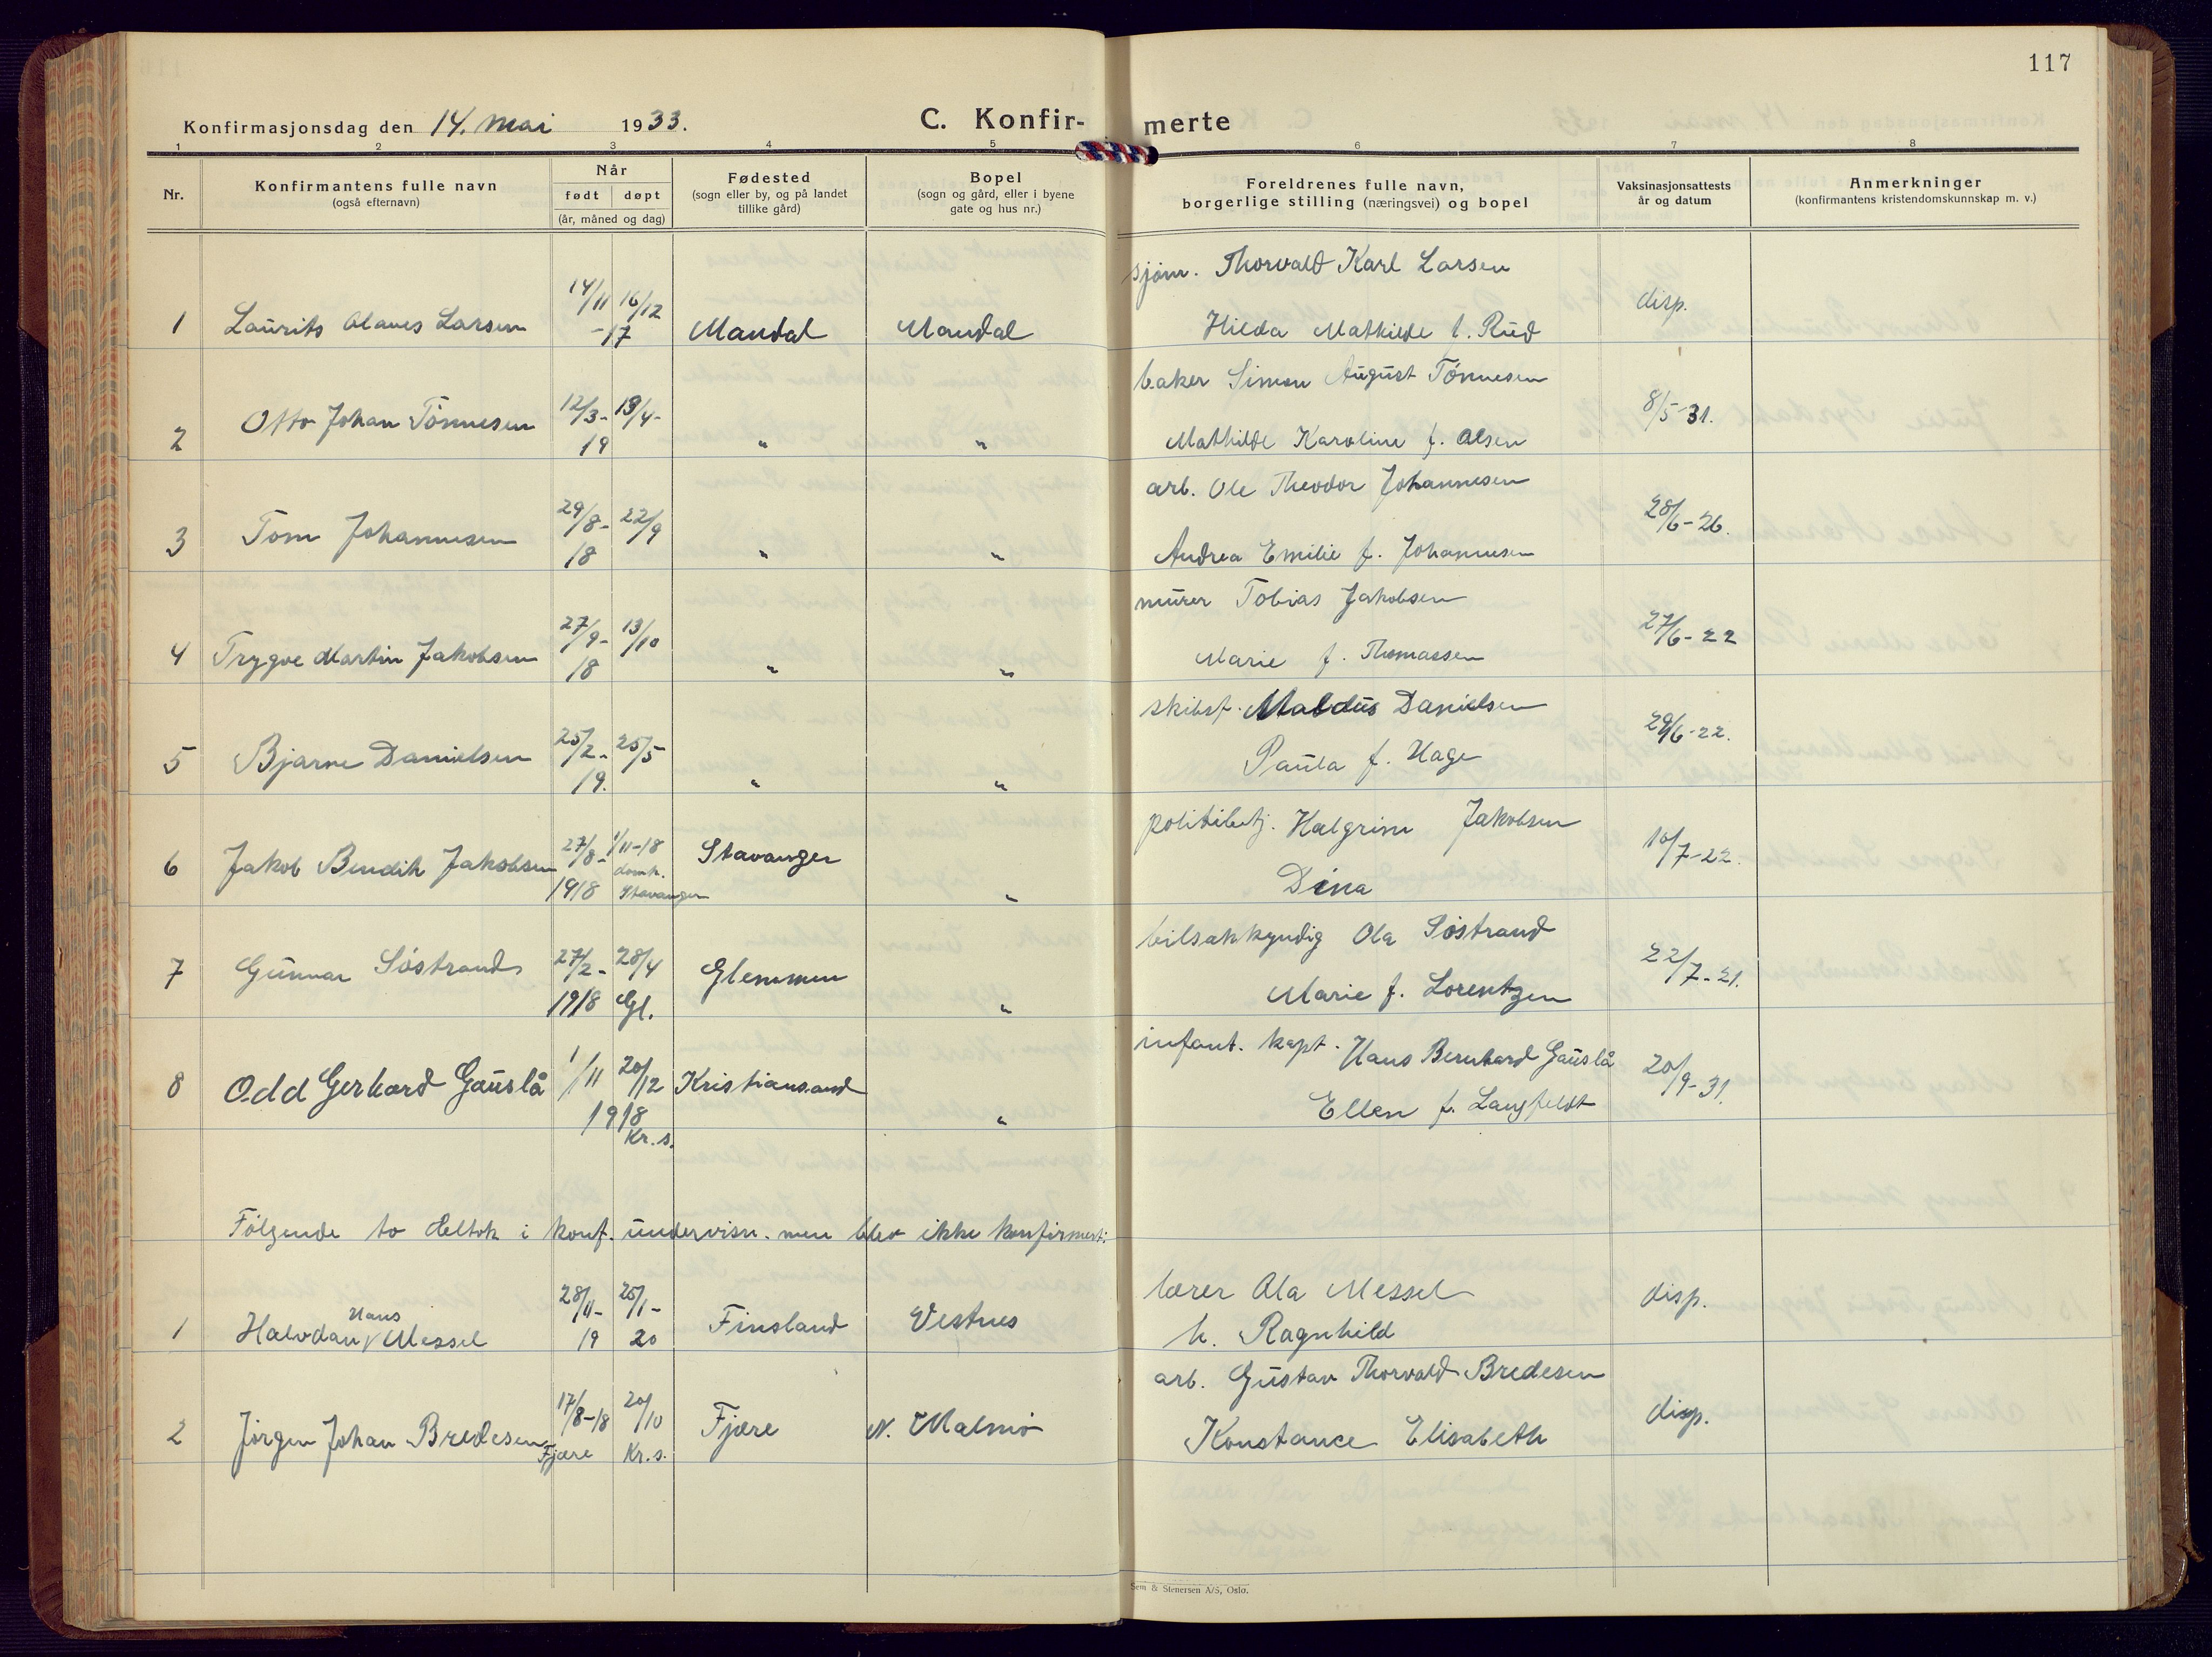 117
Konfirmasjonsdag den 14. mai 1933. C. Konfir- merte
1 2 3 4 5 6 7 8
Nr. Konfirmantens fulle navn (også efternavn) Når født døpt (år, måned og dag) Fødested (sogn eller by, og på landet tillike gård) Bopel (sogn og gård, eller i byene gate og hus nr.) Foreldrenes fulle navn, borgerlige stilling (næringsvei) og bopel Vaksinasjonsattests år og datum Anmerkninger (konfirmantens kristendomskunnskap m. v.)
sjøm. Thorvald Karl Larsen
1 Laurits Olaves Larsen 14/11 16/12 -17 Mandal Mandal Hilda Mathilde f. Rud disp.
baker Simon August Tönnesen
2 Otto Johan Tönnesen 12/3- 13/4- 19 " " Mathilde Karoline f. Olsen 8/5-31.
arb. Ole Theodor Johannesen
3 Tom Johannesen 29/8- 22/9 18 " " Andrea Emilie f. Johannesen 28/6-26.
murer Tobias Jakobsen
4 Trygve Martin Jakobsen 27/9- 13/10 18 " " Marie f. Thomassen 27/6-22
skibsf. Maldus Danielsen
5 Bjarne Danielsen 25/2- 25/5 19. " " Paula f. Hage 29/6-22.
politibetj. Halgrim Jakobsen
6 Jakob Bendik Jakobsen 27/8- 1/11-18 1918 domk. Stavanger Stavanger " Dina 10/7-22.
bilsakkyndig Ola Söstrand
7 Gunnar Söstrand 27/2- 28/4 1918 Gl. Glemmen " Marie f. Lorentzen 22/7-21.
infant. kapt. Hans Bernhard Gauslå
8 Odd Gerhard Gauslå 1/11 20/12 1918 Kr. s. Kristiansand " Ellen f. Langfeldt 20/9-31.
Fölgende to deltok i konf. undervisn. men blev ikke konfirmert:
lærer Ola Messel
1 Halvdan Hans Messel 28/11- 25/1- 19 20 Finsland Vestnes h. Ragnhild disp.
arb. Gustav Thorvald Bredesen
2 Jörgen Johan Bredesen 17/8-18 20/10 Fjære Kr. s. Fjære N. Malmö Konstance Elisabeth disp.
Sem & Stenersen A/S, Oslo.